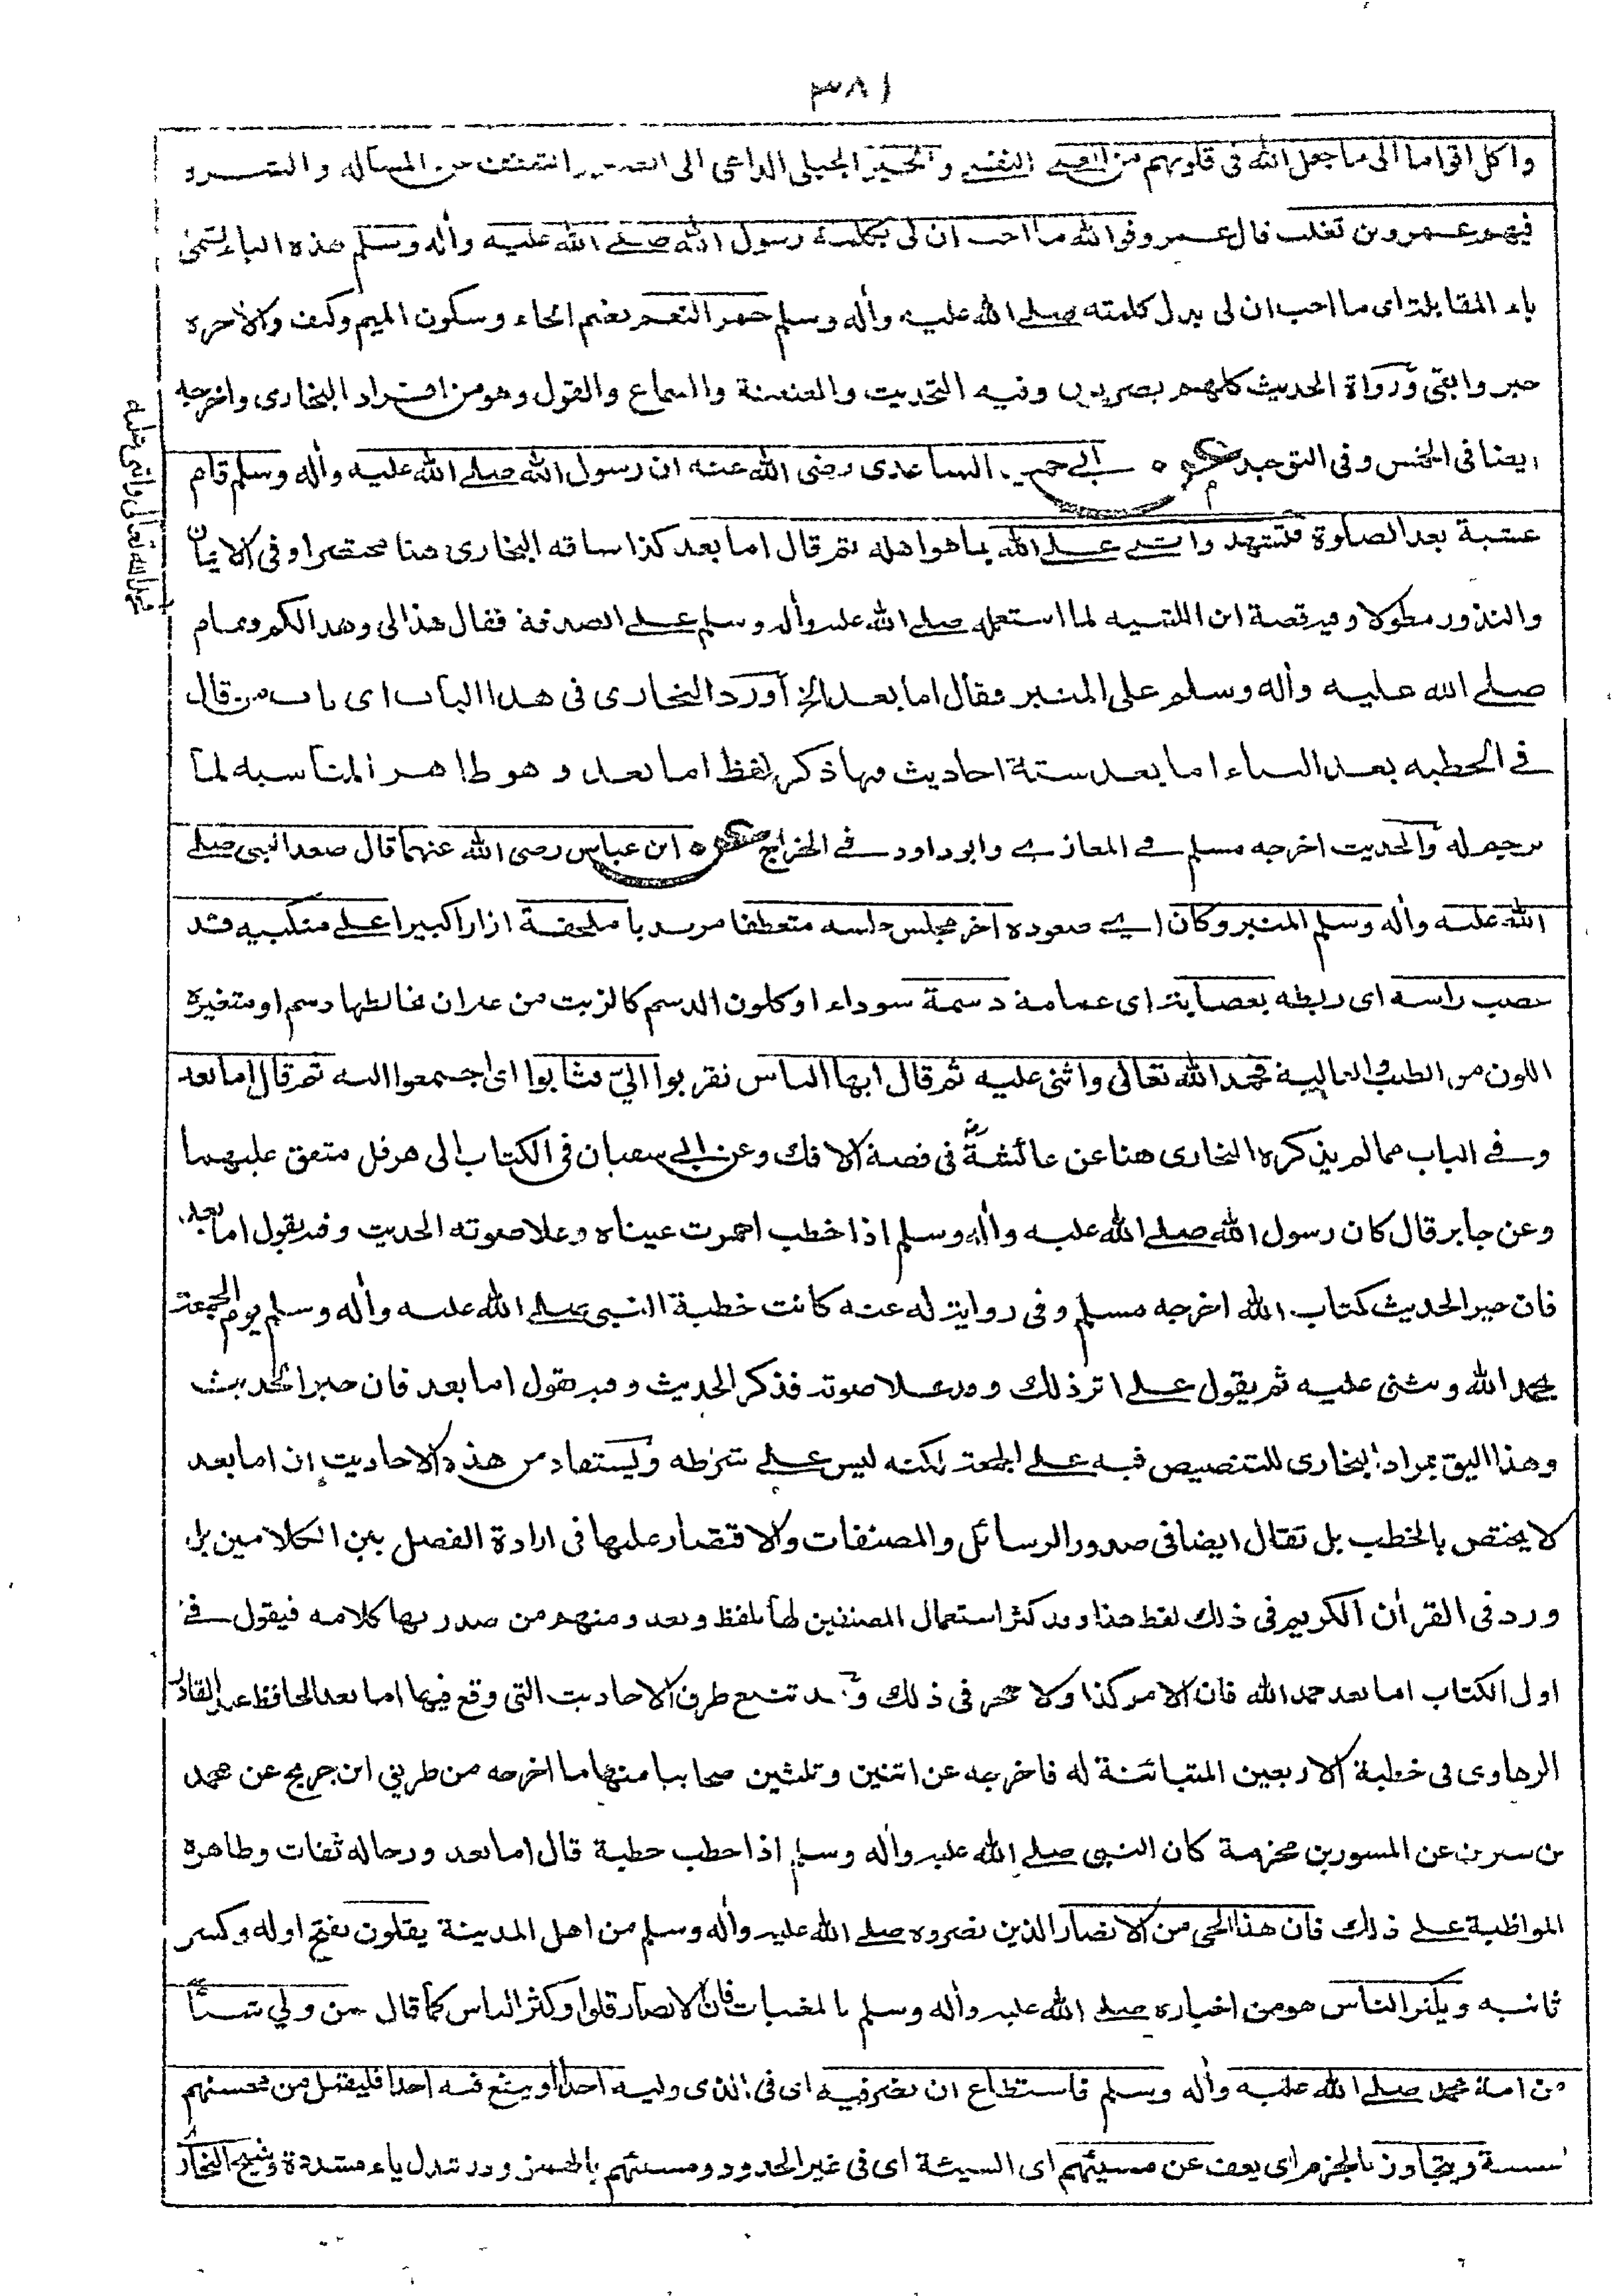 ٣٨١
واكل اقواما الى ما جعل الله فى قلوبهم من الغنى النفسى والخير الجبلى الداعى الى الصبر والتعفف عن المسألة والشره
فيهم عمرو بن تغلب قال عمرو فوالله ما احب ان لى بكلمة رسول الله صلى الله عليه واٰله وسلم هذه الباء تسمى
باء المقابلة اى ما احب ان لى بدل كلمته صلى الله عليه واٰله وسلم حمر النعم بضم الحاء وسكون الميم وكيف والاخرة
خير وابقى ورواة الحديث كلهم بصريون وفيه التحديث والعنعنة والسماع والقول وهو من افراد البخارى واخرجه
ايضا فى الخمس وفى التوحيد عن ابى حميد الساعدى رضى الله عنه ان رسول الله صلى الله عليه واٰله وسلم قام
عشية بعد الصلوة فتشهد واثنى على الله بما هو اهله ثم قال اما بعد كذا ساقه البخارى هنا مختصرا وفى الايمان
والنذور مطولا وفيه قصة ابن اللتبية لما استعمله صلى الله عليه واٰله وسلم على الصدقة فقال هذا لى وهذا لكم فقام
صلى الله عليه واٰله وسلم على المنبر فقال اما بعد الخ اورد البخارى فى هذا الباب اى باب من قال
فى الخطبة بعد الثناء اما بعد ستة احاديث فيها ذكر لفظ اما بعد وهو ظاهر المناسبة لما
ترجم له والحديث اخرجه مسلم فى المغازى وابو داود فى الخراج عن ابن عباس رضى الله عنهما قال صعد النبى صلى
الله عليه واٰله وسلم المنبر وكان اى صعوده اخر مجلس جلسه متعطفا مرتديا ملحفة ازارا كبيرا على منكبيه قد
عصب راسه اى ربطه بعصابة اى عمامة دسمة سوداء او كلون الدسم كالزيت من غير ان خالطها دسم او متغيرة
اللون من الطيب والغالية فحمد الله تعالى واثنى عليه ثم قال ايها الناس تقربوا الىّ فثابوا اى اجتمعوا اليه ثم قال اما بعد
وفى الباب مما لم يذكره البخارى هنا عن عائشة رض فى قصة الافك وعن ابى سفيان فى الكتاب الى هرقل متفق عليهما
وعن جابر قال كان رسول الله صلى الله عليه واٰله وسلم اذا خطب احمرت عيناه وعلا صوته الحديث وفيه يقول اما بعد
فان خير الحديث كتاب الله اخرجه مسلم وفى رواية له عنه كانت خطبة النبى صلى الله عليه واٰله وسلم يوم الجمعة
يحمد الله ويثنى عليه ثم يقول على اثر ذلك وقد علا صوته فذكر الحديث وفيه يقول اما بعد فان خير الحديث
وهذا اليق بمراد البخارى للتنصيص فيه على الجمعة لكنه ليس على شرطه ويستفاد من هذه الاحاديث ان اما بعد
لا يختص بالخطب بل تقال ايضا فى صدور الرسائل والمصنفات والاقتصار عليها فى ارادة الفصل بين الكلامين بل
ورد فى القراٰن الكريم فى ذلك لفظ هذا وقد كثر استعمال المصنفين لها بلفظ وبعد ومنهم من صدر بها كلامه فيقول فى
اول الكتاب اما بعد حمد الله فان الامر كذا ولا حجر فى ذلك وقد تتبع طرق الاحاديث التى وقع فيها اما بعد الحافظ عبد القادر
الرهاوى فى خطبة الاربعين المتبائنة له فاخرجه عن اثنين وثلثين صحابيا منها ما اخرجه من طريق ابن جريج عن محمد
بن سيرين عن المسور بن مخرمة كان النبى صلى الله عليه واٰله وسلم اذا خطب خطبة قال اما بعد ورجاله ثقات وظاهره
المواظبة على ذلك فان هذا الحى من الانصار الذين نصروه صلى الله عليه واٰله وسلم من اهل المدينة يقلون بفتح اوله وكسر
ثانيه ويكثر الناس هو من اخباره صلى الله عليه واٰله وسلم بالمغيبات فان الانصار قلوا وكثر الناس كما قال فمن ولى شيئا
من امة محمد صلى الله عليه واٰله وسلم فاستطاع ان يضر فيه اى فى الذى وليه احدا او ينفع فيه احدا فليقبل من محسنهم
الحسنة ويتجاوز بالجزم اى يعف عن مسيئهم اى السيئة اى فى غير الحدود ومسيئهم بالهمز وقد تبدل ياء مشددة وشيخ البخارى
فحمد الله تعالى واثنى عليه